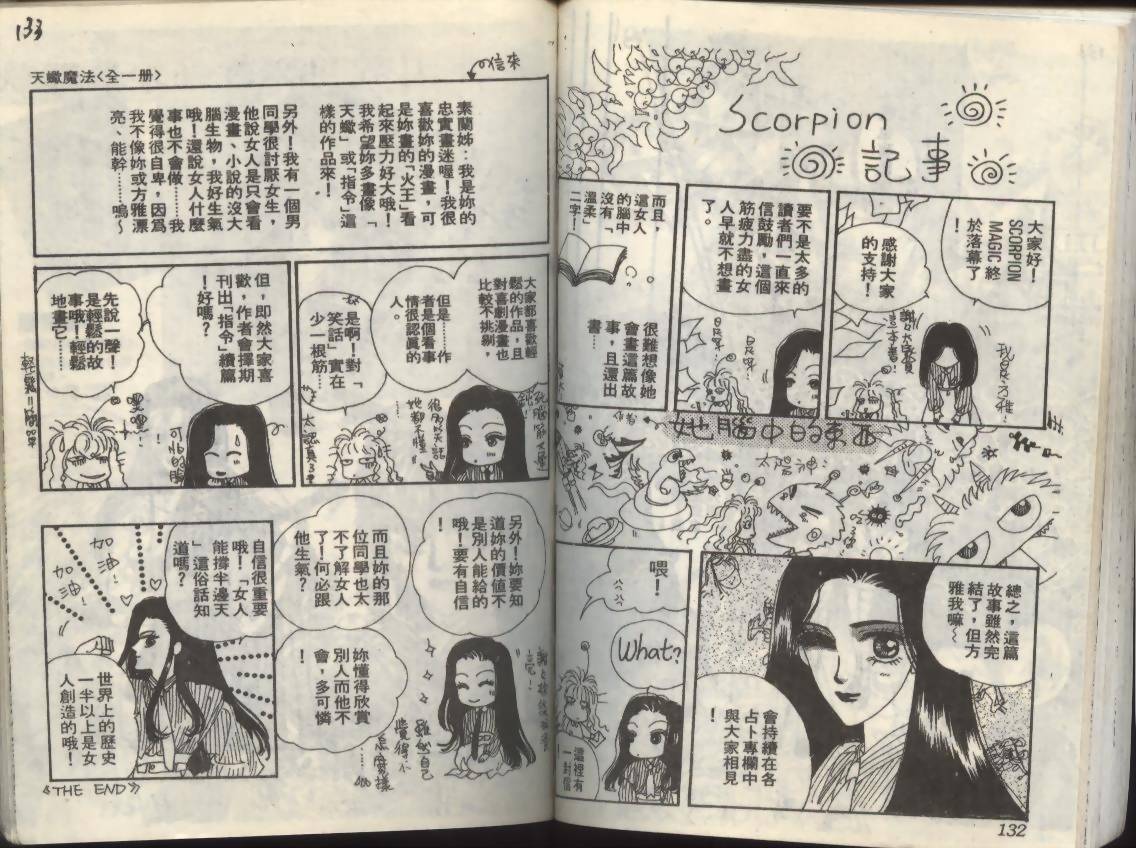 Scorpion
記事
大家好！
SCORPION
MAGIC 終
於落幕了
！
感謝大家
的支持！
我是方雅
要不是太多的
讀者們一直來
信鼓勵，這個
筋疲力盡的女
人早就不想畫
了。
是呀…
是呀…
而且，
這女人
的腦中
沒有「
溫柔」
二字！
很難想像她
會畫這篇故
事，且還出
書…
她腦中的東西
總之，這篇
故事雖然完
結了，但方
雅我嘛～
會持續在各
占卜專欄中
與大家相見
！
喂！
What?
這裡有
一封信
！
132
133
天蠍魔法〈全一册〉
信來
素蘭姊：我是妳的
忠實畫迷喔！我很
喜歡妳的漫畫，可
是妳畫的「火王」看
起來壓力好大哦！
我希望妳多畫像「
天蠍」或「指令」這
樣的作品來！
另外！我有一個男
同學很討厭女生，
他說女人是只會看
漫畫、小說的沒大
腦生物，我好生氣
哦！還說女人什麼
事也不會做……我
覺得很自卑，因爲
我不像妳或方雅漂
亮、能幹……嗚～
大家都喜歡輕
鬆的作品，且
對喜劇漫畫也
比較不挑剔，
但是……作
者是個看事
情很認真的
人。
很多笑話
她都不懂
是啊！對「
笑話」實在
少一根筋…
太認真了
但，即然大家喜
歡，作者會擇期
刊出「指令」續篇
！好嗎？
可怕的
先說一聲！
是輕鬆的故
事哦！輕鬆
地畫它……
嘿嘿…
輕鬆!!簡單
另外！妳要知
道妳的價值不
是別人能給的
哦！要有自信
而且妳的那
位同學也太
不了解女人
了！何必跟
他生氣？
妳懂得欣賞
別人而他不
會，多可憐
！
雖然自己
不怎麼樣
自信很重要
哦！「女人
能撐半邊天
」這俗話知
道嗎？
加油！
加油！
世界上的歷史
一半以上是女
人創造的哦！
《THE END》